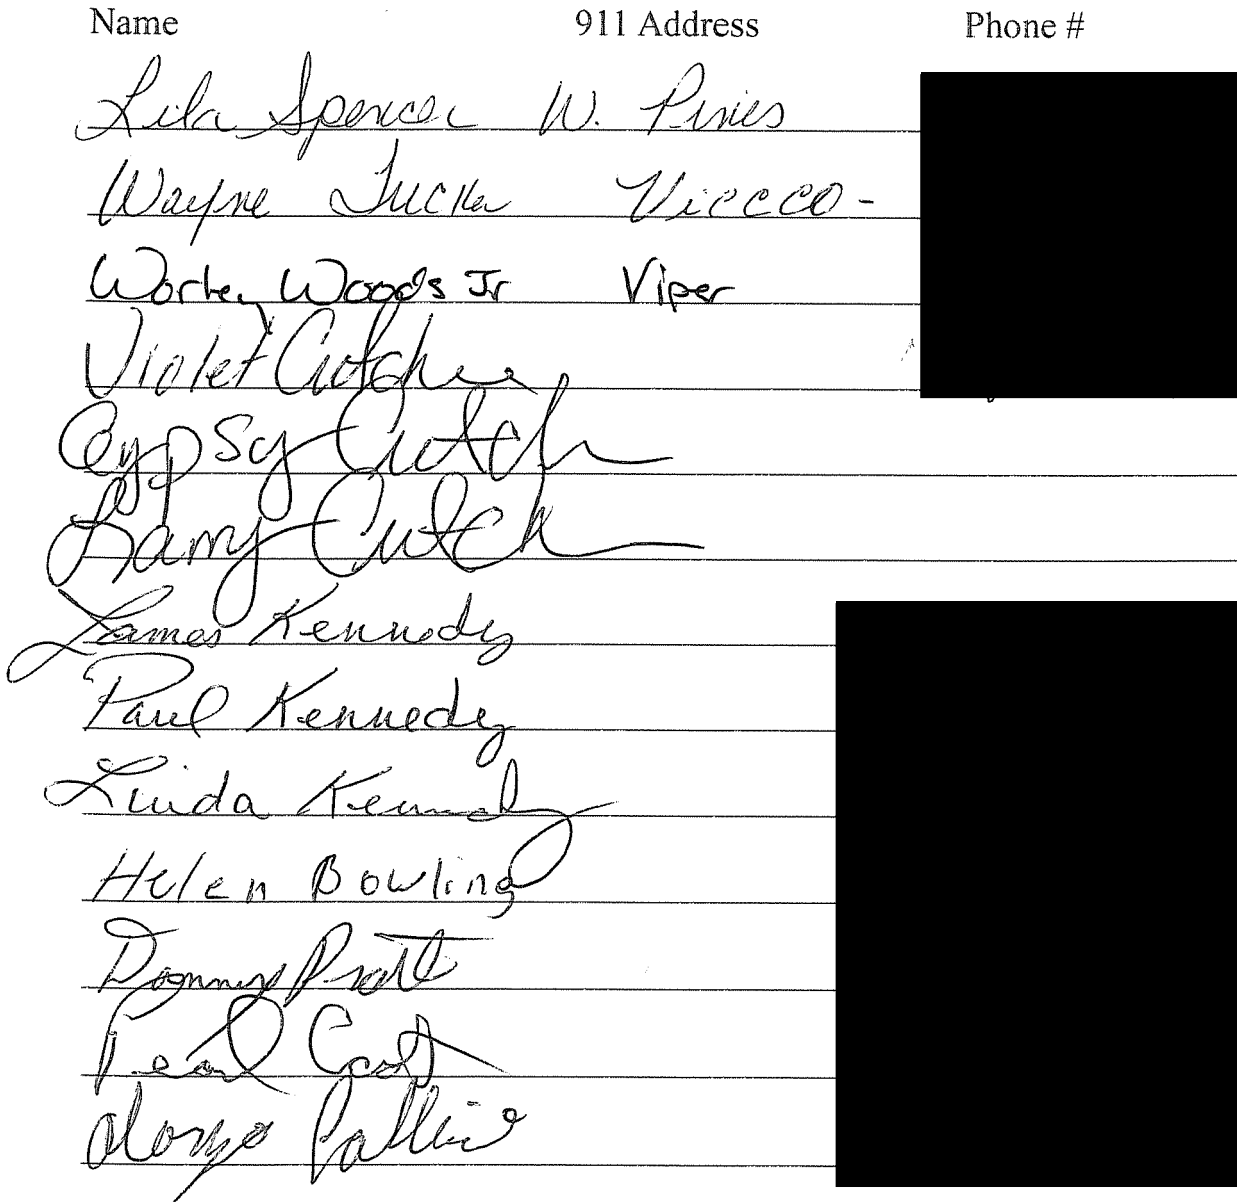 Name 911 Address Phone #
Lila Spencer W. Pines
Wayne Tucker Vicco -
Worley Woods Jr Viper
Violet
Gypsy Cutch
Larry Cutch
James Kennedy
Paul Kennedy
Linda Kennedy
Helen Bowling
Pratt
Pearl